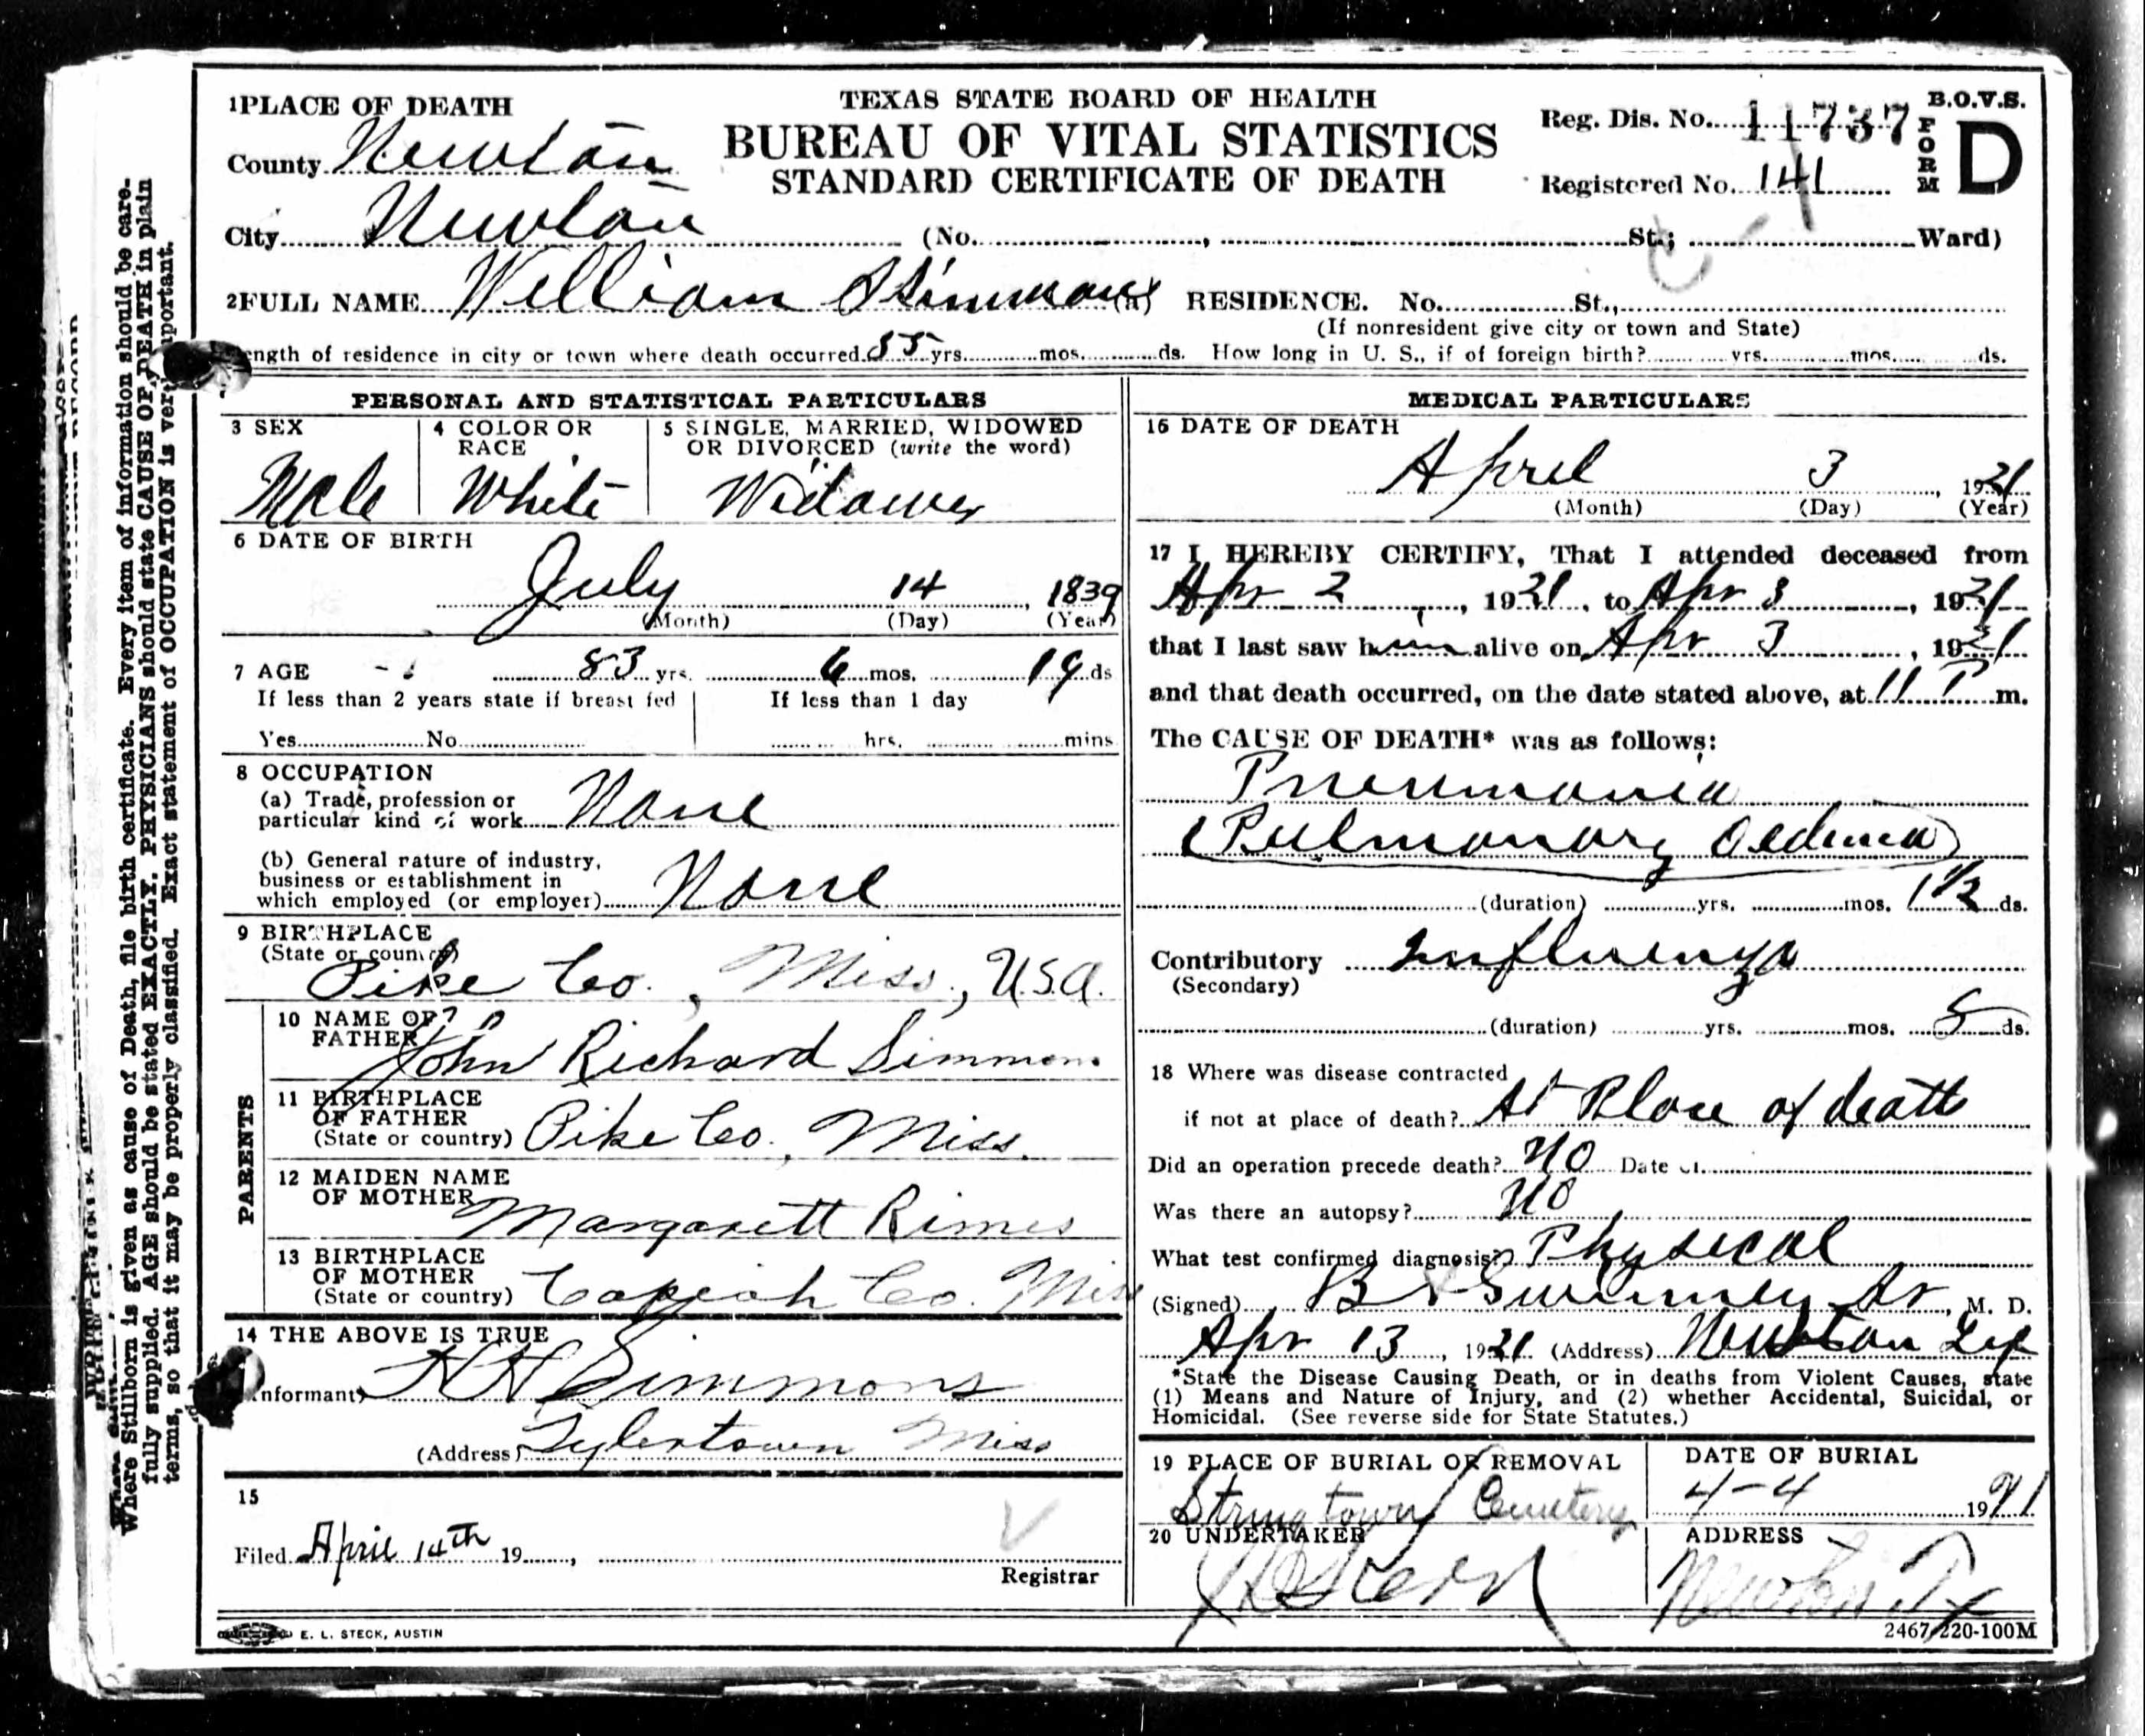 1 PLACE OF DEATH
TEXAS STATE BOARD OF HEALTH
BUREAU OF VITAL STATISTICS
STANDARD CERTIFICATE OF DEATH
B.O.V.S.
FORM D
Reg. Dis. No. 11737
Registered No. 141
County Newton
City Newton (No. , St.; Ward)
2 FULL NAME William Simmons (a) RESIDENCE. No. St.,
(If nonresident give city or town and State)
ength of residence in city or town where death occurred 55 yrs. mos. ds. How long in U. S., if of foreign birth? yrs. mos. ds.
PERSONAL AND STATISTICAL PARTICULARS
3 SEX
Male
4 COLOR OR RACE
White
5 SINGLE, MARRIED, WIDOWED
OR DIVORCED (write the word)
Widower
6 DATE OF BIRTH
July 14, 1839
(Month) (Day) (Year)
7 AGE 83 yrs. 6 mos. 19 ds
If less than 2 years state if breast fed
If less than 1 day
Yes No
hrs. mins
8 OCCUPATION
(a) Trade, profession or
particular kind of work None
(b) General nature of industry,
business or establishment in
which employed (or employer) None
9 BIRTHPLACE
(State or country)
Pike Co., Miss., U.S.A.
PARENTS
10 NAME OF
FATHER John Richard Simmons
11 BIRTHPLACE
OF FATHER
(State or country) Pike Co., Miss.
12 MAIDEN NAME
OF MOTHER Margarett Rimes
13 BIRTHPLACE
OF MOTHER
(State or country) Copiah Co. Miss
14 THE ABOVE IS TRUE
nformant) Simmons
(Address) Tylertown Miss
15
Filed April 14th 19 ,
Registrar
E. L. STECK, AUSTIN
MEDICAL PARTICULARS
16 DATE OF DEATH
April 3, 1921
(Month) (Day) (Year)
17 I HEREBY CERTIFY, That I attended deceased from
Apr 2, 1921, to Apr 3, 1921
that I last saw him alive on Apr 3, 1921
and that death occurred, on the date stated above, at 11 P m.
The CAUSE OF DEATH* was as follows:
Pneumonia
(Pulmonary Oedema)
(duration) yrs. mos. 1 1/2 ds.
Contributory Influenza
(Secondary)
(duration) yrs. mos. 5 ds.
18 Where was disease contracted
if not at place of death? At Place of death
Did an operation precede death? No Date of
Was there an autopsy? No
What test confirmed diagnosis? Physical
(Signed) Swinney Sr, M. D.
Apr 13, 1921 (Address) Newton Tex
*State the Disease Causing Death, or in deaths from Violent Causes, state
(1) Means and Nature of Injury, and (2) whether Accidental, Suicidal, or
Homicidal. (See reverse side for State Statutes.)
19 PLACE OF BURIAL OR REMOVAL
Stringtown Cemetery
DATE OF BURIAL
4-4 1921
20 UNDERTAKER
ADDRESS
Newton Tx
2467-220-100M
Where Stillborn is given as cause of Death, file birth certificate. Every item of information should be care-
fully supplied. AGE should be stated EXACTLY. PHYSICIANS should state CAUSE OF DEATH in plain
terms, so that it may be properly classified. Exact statement of OCCUPATION is very important.